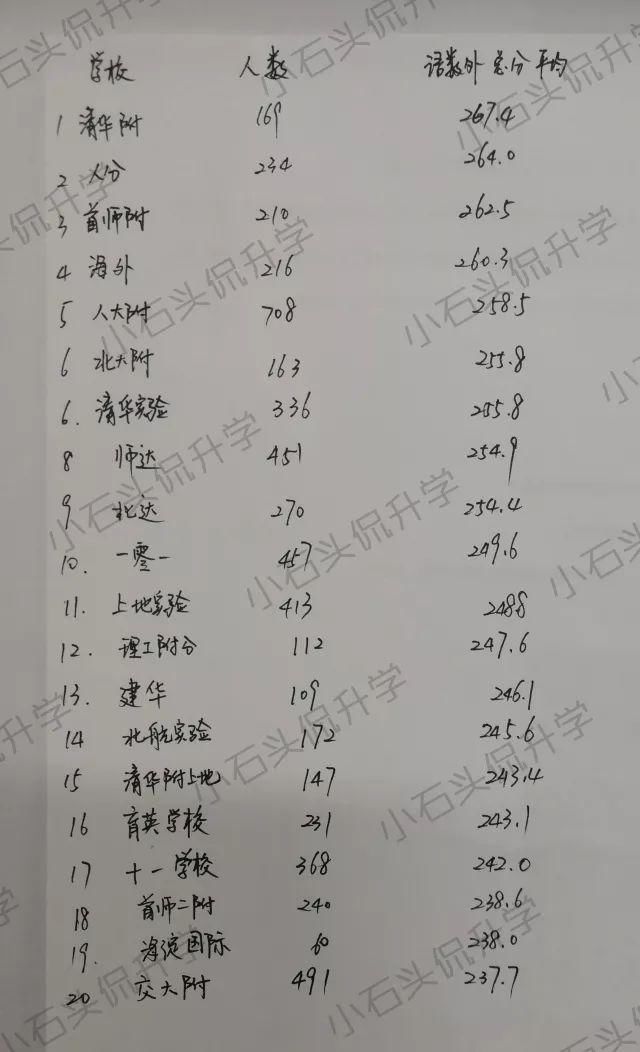 学校 人数 语数外总分平均
1 清华附 169 267.4
2 人分 234 264.0
3 首师附 210 262.5
4 海外 216 260.3
5 人大附 708 258.5
6 北大附 163 255.8
6. 清华实验 336 255.8
8 师达 451 254.9
9 北达 270 254.4
10. 一零一 457 249.6
11. 上地实验 413 248.8
12. 理工附分 112 247.6
13. 建华 109 246.1
14 北航实验 172 245.6
15 清华附上地 147 243.4
16 育英学校 231 243.1
17 十一学校 368 242.0
18 首师二附 240 238.6
19. 海淀国际 60 238.0
20 交大附 491 237.7
小石头侃升学